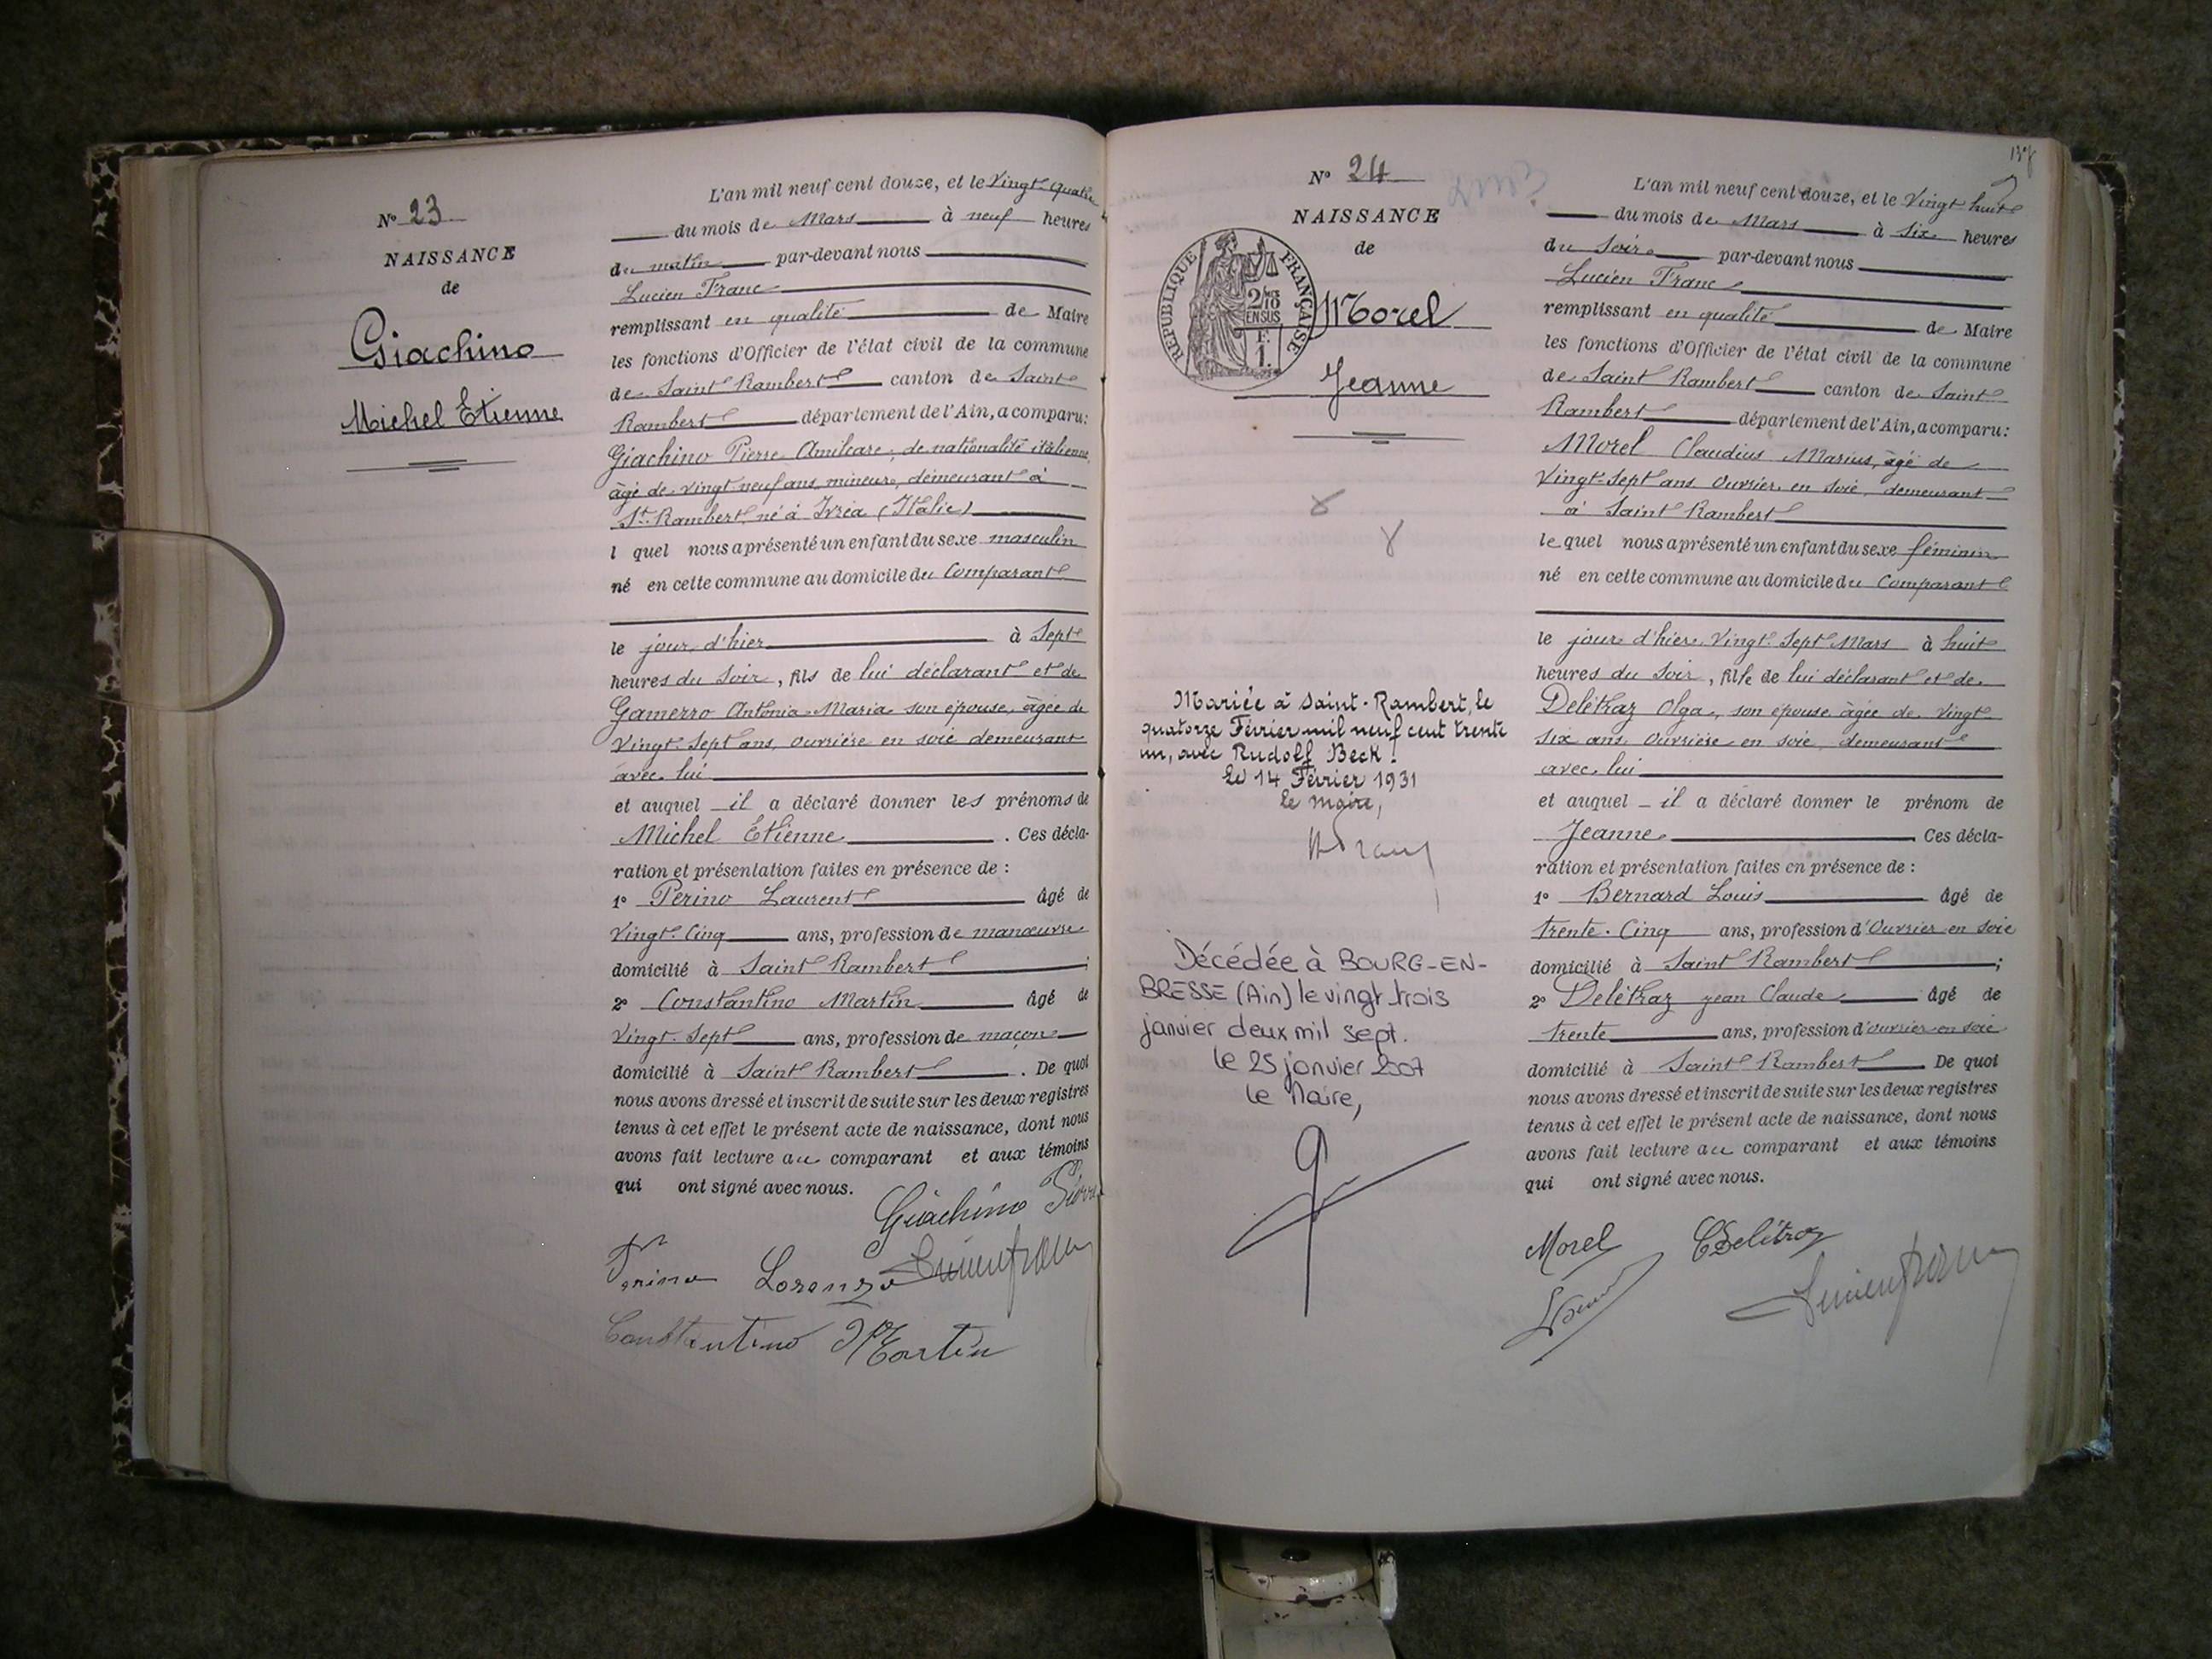 N° 23
NAISSANCE
de
Giachino
Michel Etienne
L'an mil neuf cent douze, et le Vingt-quatre
du mois de Mars à neuf heures
du matin par-devant nous
Lucien Franc
remplissant en qualité de Maire
les fonctions d'Officier de l'état civil de la commune
de Saint Rambert canton de Saint
Rambert département de l'Ain, a comparu:
Giachino Pierre Amilcare, de nationalité italienne,
âgé de vingt-neuf ans, mineur, demeurant à
St. Rambert, né à Ivréa (Italie)
l quel nous a présenté un enfant du sexe masculin
né en cette commune au domicile du Comparant
le jour d'hier à Sept
heures du Soir, fils de lui déclarant et de
Gamerro Antonia Maria son épouse, âgée de
Vingt-Sept ans, ouvrière en soie demeurant
avec lui
et auquel il a déclaré donner les prénoms de
Michel Étienne . Ces décla-
ration et présentation faites en présence de :
1° Perino Laurent âgé de
Vingt-Cinq ans, profession de manœuvre
domicilié à Saint Rambert ;
2° Constantino Martin âgé de
Vingt-Sept ans, profession de maçon
domicilié à Saint Rambert . De quoi
nous avons dressé et inscrit de suite sur les deux registres
tenus à cet effet le présent acte de naissance, dont nous
avons fait lecture au comparant et aux témoins
qui ont signé avec nous.
Giachino Pierre
Perino Lorenzo Lucien Franc
Constantino Martin
N° 24
NAISSANCE
de
REPUBLIQUE FRANÇAISE
2/10
EN SUS
F.
1.
Morel
Jeanne
Mariée à Saint-Rambert, le
quatorze Février mil neuf cent trente
un, avec Rudolf Beck.
Le 14 Février 1931
le maire,
Décédée à BOURG-EN-
BRESSE (Ain) le vingt trois
janvier deux mil sept.
le 25 janvier 2007
Le Maire,
137
L'an mil neuf cent douze, et le Vingt huit
du mois de Mars à Six heures
du Soir par-devant nous
Lucien Franc
remplissant en qualité de Maire
les fonctions d'Officier de l'état civil de la commune
de Saint Rambert canton de Saint
Rambert département de l'Ain, a comparu:
Morel Claudius Marius, âgé de
Vingt-Sept ans Ouvrier en Soie, demeurant
à Saint Rambert
lequel nous a présenté un enfant du sexe féminin
né en cette commune au domicile du Comparant
le jour d'hier Vingt-Sept Mars à huit
heures du Soir, fille de lui déclarant et de
Delétraz Olga, son épouse âgée de Vingt
Six ans, Ouvrière en soie, demeurant
avec lui
et auquel il a déclaré donner le prénom de
Jeanne Ces décla-
ration et présentation faites en présence de :
1° Bernard Louis âgé de
trente-Cinq ans, profession d'Ouvrier en Soie
domicilié à Saint Rambert ;
2° Delétraz Jean Claude âgé de
trente ans, profession d'ouvrier en soie
domicilié à Saint Rambert De quoi
nous avons dressé et inscrit de suite sur les deux registres
tenus à cet effet le présent acte de naissance, dont nous
avons fait lecture au comparant et aux témoins
qui ont signé avec nous.
Morel CDelétraz
Lucien Franc